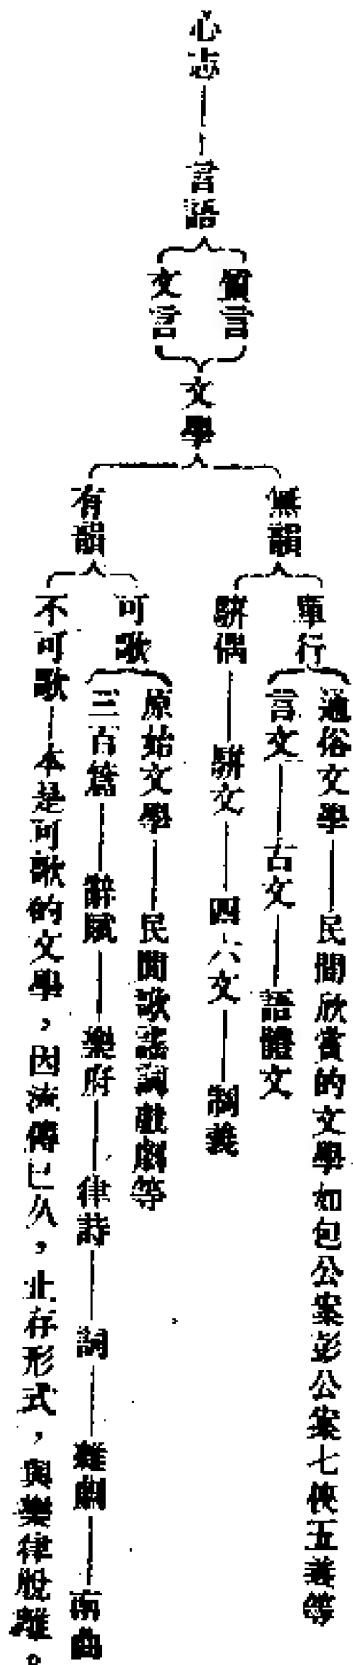 心志——言語
質言
文言
文學
無韻
單行
通俗文學——民間欣賞的文學如包公案彭公案七俠五義等
言文——古文——語體文
駢偶——駢文——四六文——制義
有韻
可歌
原始文學——民間歌謠詞戲劇等
三百篇——辭賦——樂府——律詩——詞——雜劇——南曲
不可歌—本是可歌的文學，因流傳已久，止存形式，與樂律脫離。